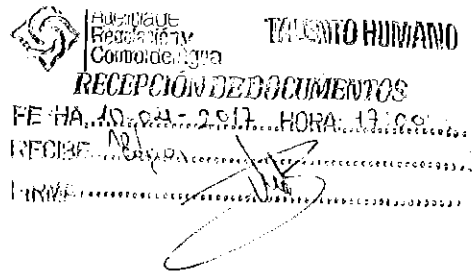 Agencia de
Regulación y
Control de Agua
TALENTO HUMANO
RECEPCIÓN DE DOCUMENTOS
FECHA 10-04-2017 HORA: 17:00
RECIBE
FIRMA